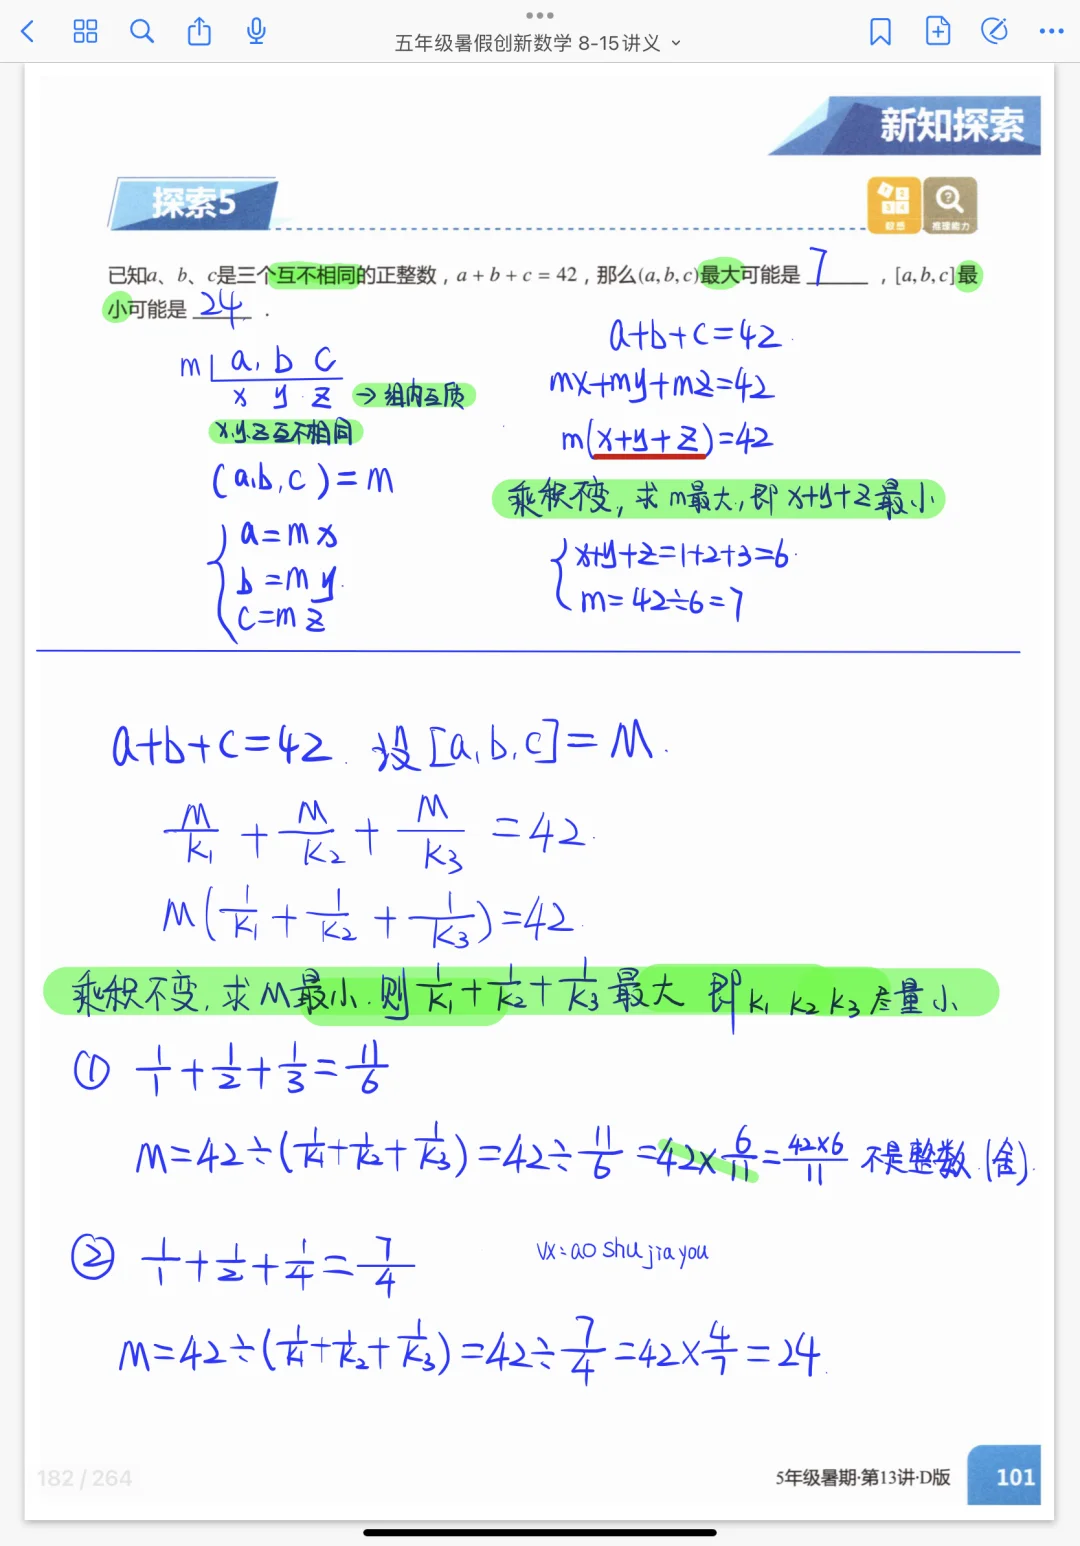 五年级暑假创新数学 8-15讲义
新知探索
探索5
数感
推理能力
已知a、b、c是三个互不相同的正整数，a + b + c = 42，那么(a, b, c)最大可能是 7 ，[a, b, c]最
小可能是 24 ．
m a, b c
x y z → 组内互质
x.y.z互不相同
(a,b,c) = m
a=mx
b=my
c=mz
a+b+c=42
mx+my+mz=42
m(x+y+z)=42
乘积不变,求m最大,即x+y+z最小
x+y+z=1+2+3=6
m=42÷6=7
a+b+c=42. 设[a,b,c]=M.
M/K₁ + M/K₂ + M/K₃ =42.
M(1/K₁ + 1/K₂ + 1/K₃)=42
乘积不变,求M最小.则1/K₁+1/K₂+1/K₃最大 即K₁ K₂ K₃尽量小
① 1/1+1/2+1/3=11/6
M=42÷(1/K₁+1/K₂+1/K₃)=42÷11/6=42×6/11=42×6/11 不是整数.(舍)
② 1/1+1/2+1/4=7/4
vx:aoshujiayou
M=42÷(1/K₁+1/K₂+1/K₃)=42÷7/4=42×4/7=24
182 / 264
5年级暑期·第13讲·D版
101